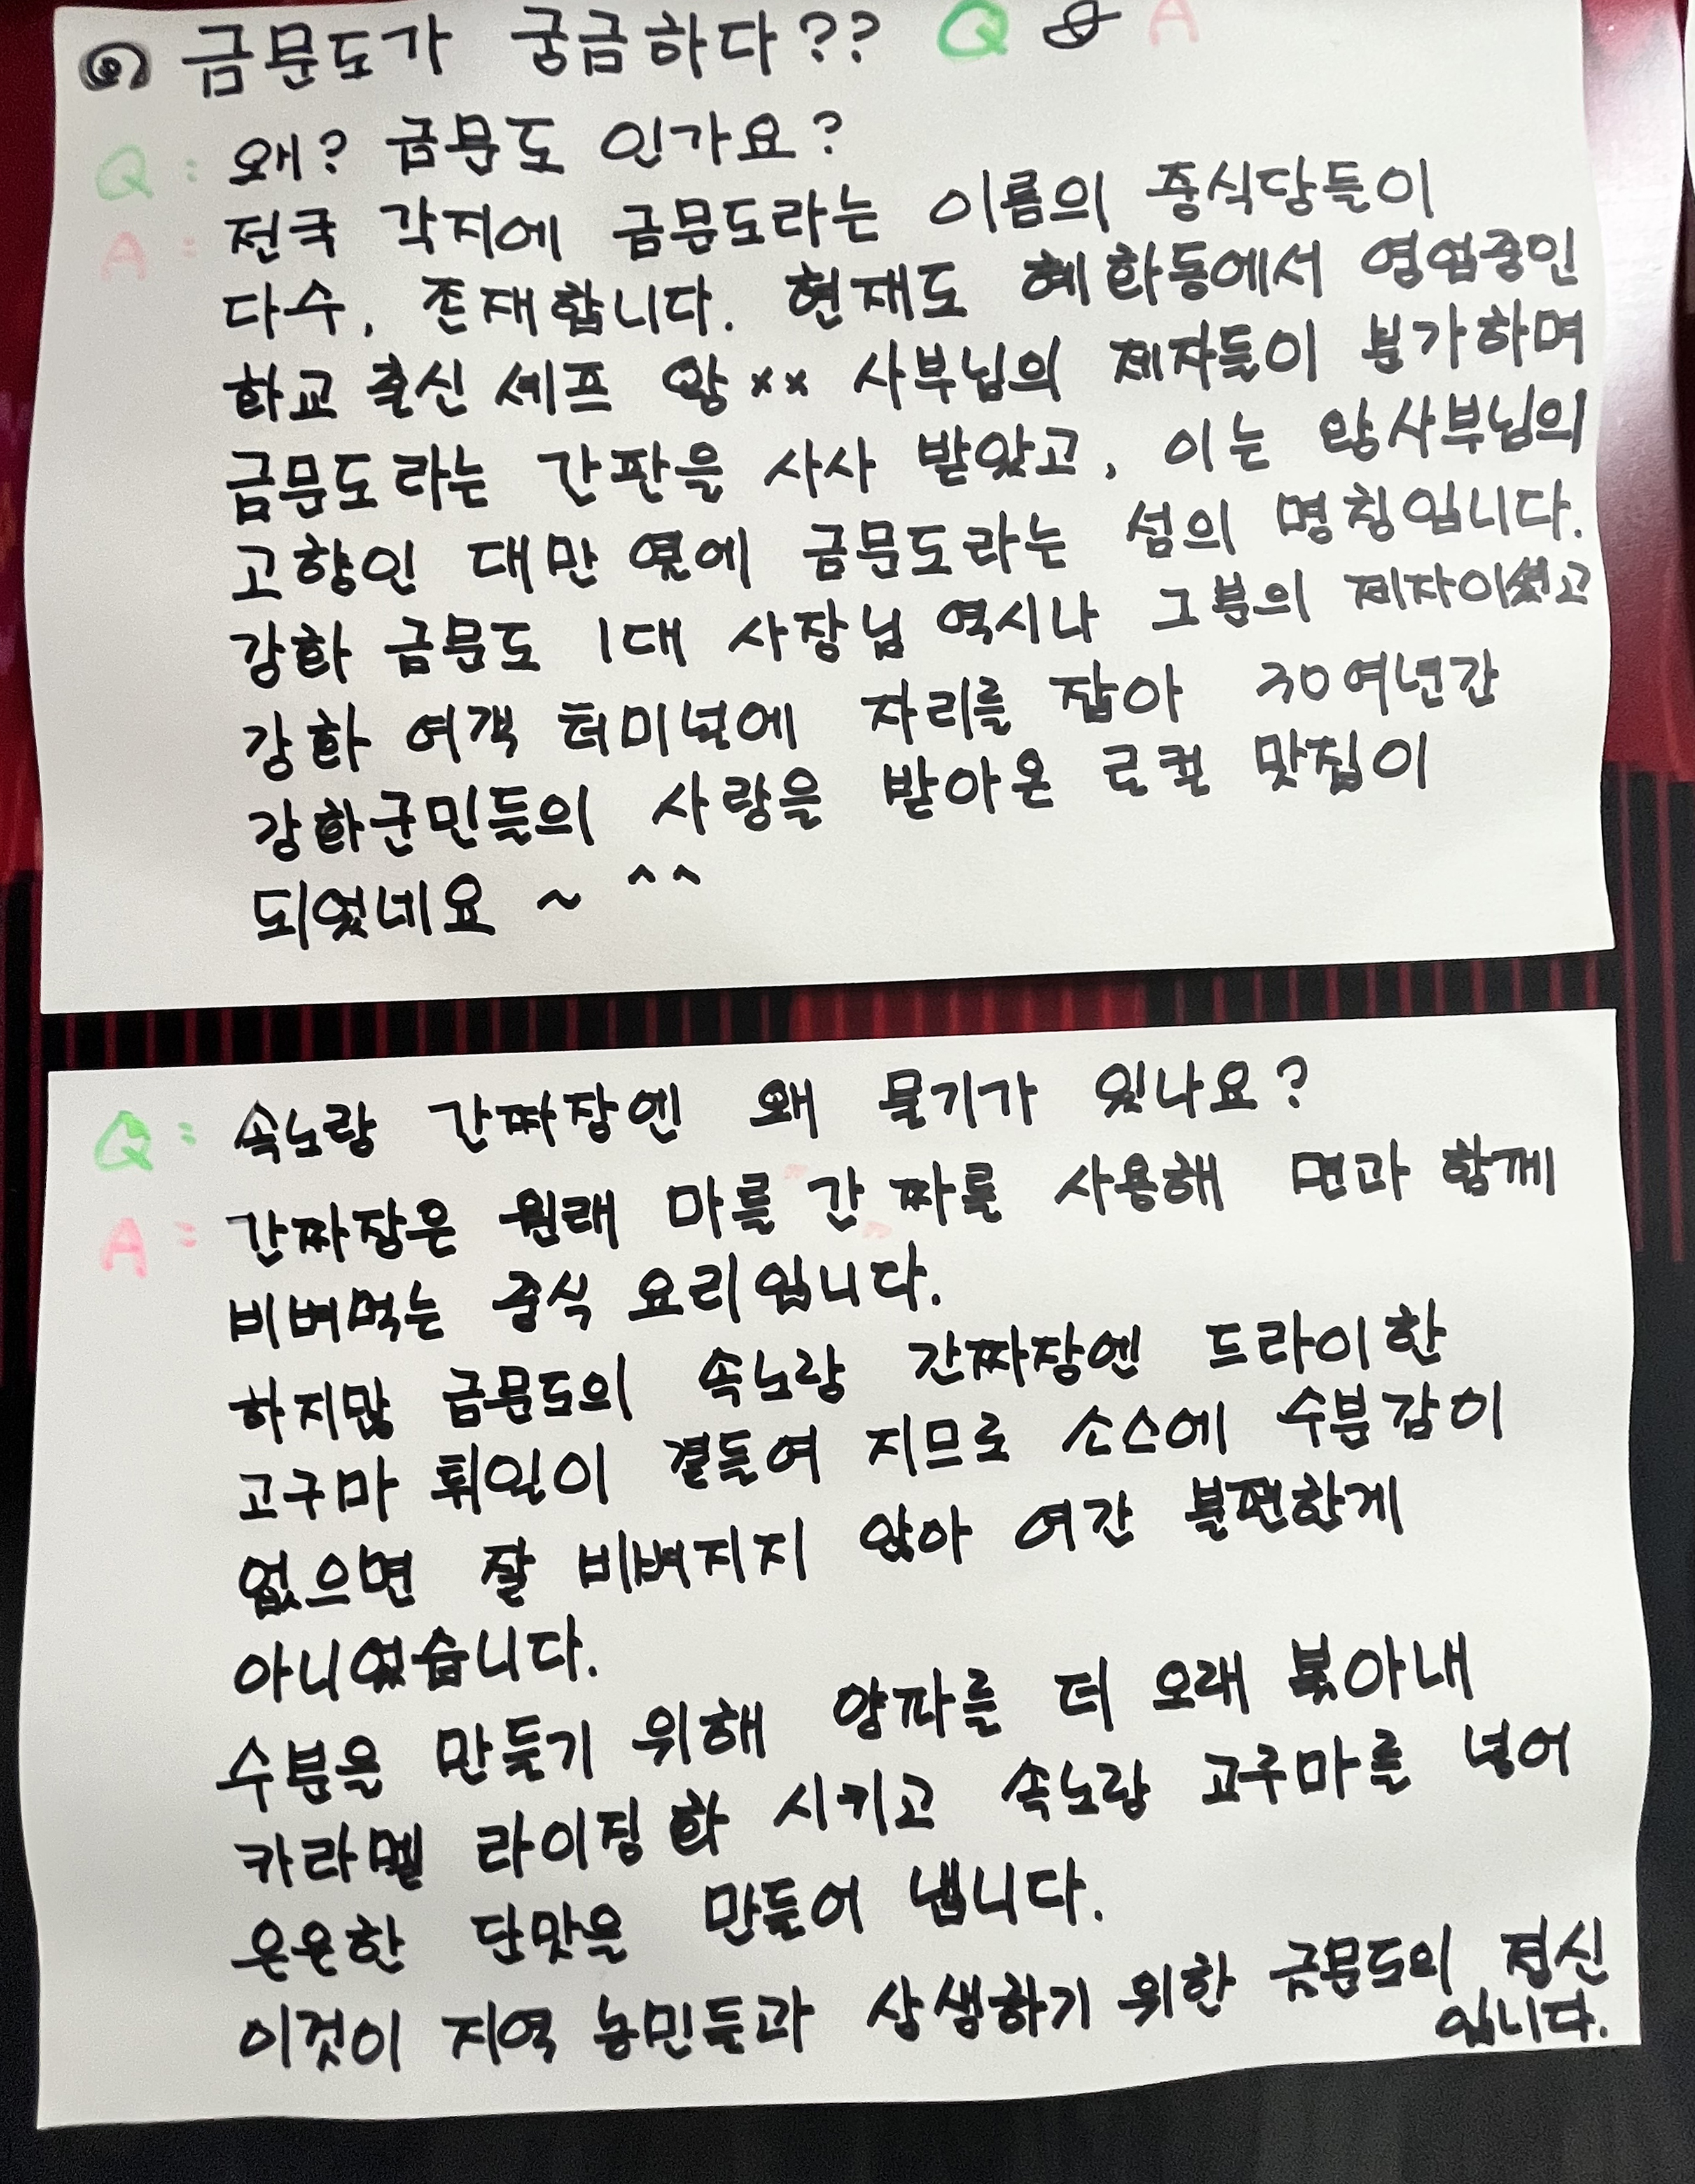 금문도가 궁금하다?? Q & A
Q: 왜? 금문도 인가요?
A: 전국 각지에 금문도라는 이름의 중식당들이
다수, 존재합니다. 현재도 혜화동에서 영업중인
화교 출신 셰프 왕×× 사부님의 제자들이 분가하며
금문도라는 간판을 사사 받았고, 이는 왕사부님의
고향인 대만 옆에 금문도라는 섬의 명칭입니다.
강화 금문도 1대 사장님 역시나 그분의 제자이셨고
강화 여객 터미널에 자리를 잡아 30여년간
강화군민들의 사랑을 받아온 로컬 맛집이
되었네요 ~ ^^
Q: 속노랑 간짜장엔 왜 물기가 있나요?
A: 간짜장은 원래 마를"간"짜를 사용해 면과 함께
비벼먹는 중식 요리입니다.
하지많 금문도의 속노랑 간짜장엔 드라이한
고구마 튀일이 곁들여 지므로 소스에 수분감이
없으면 잘 비벼지지 않아 여간 불편한게
아니었습니다.
수분을 만들기 위해 양파를 더 오래 볶아내
카라멜 라이징화 시키고 속노랑 고구마를 넣어
은은한 단맛을 만들어 냅니다.
이것이 지역 농민들과 상생하기 위한 금문도의 정신
입니다.